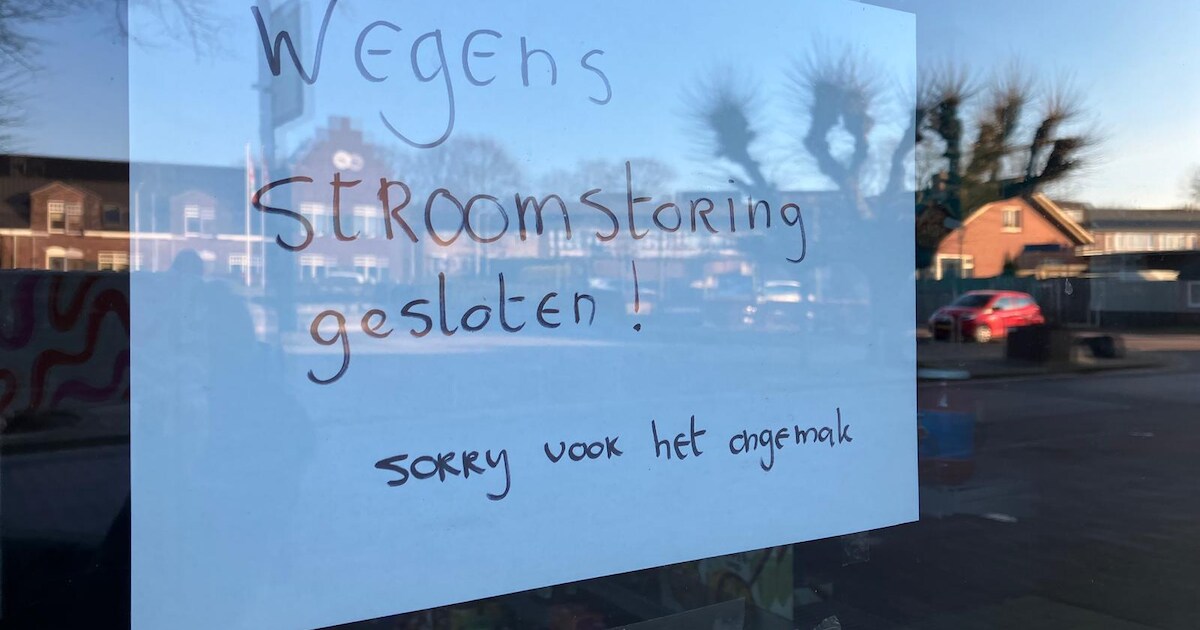 Wegens
Stroomstoring
gesloten!
sorry voor het ongemak